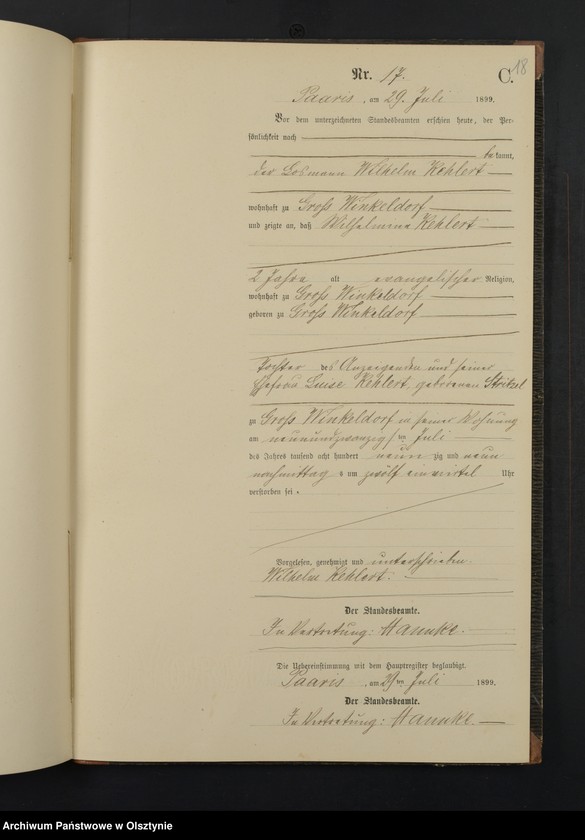 18
Nr. 17. C.
Paaris, am 29. Juli 1899.
Vor dem unterzeichneten Standesbeamten erschien heute, der Per-
sönlichkeit nach
bekannt,
der Losmann Wilhelm Kehlert
wohnhaft zu Groß Winkeldorf
und zeigte an, daß Wilhelmine Kehlert
2 Jahre alt evangelischer Religion,
wohnhaft zu Groß Winkeldorf
geboren zu Groß Winkeldorf
Tochter des Anzeigenden und seiner
Ehefrau Luise Kehlert, geborenen
zu Groß Winkeldorf in seiner Wohnung
am neunundzwanzigsten Juli
des Jahres tausend acht hundert neunzig und neun
nachmittag s um zwölf einviertel Uhr
verstorben sei.
Vorgelesen, genehmigt und unterschrieben.
Wilhelm Kehlert.
Der Standesbeamte.
In Vertretung:
Die Uebereinstimmung mit dem Hauptregister beglaubigt.
Paaris, am 29ten Juli 1899.
Der Standesbeamte.
In Vertretung:
Archiwum Państwowe w Olsztynie